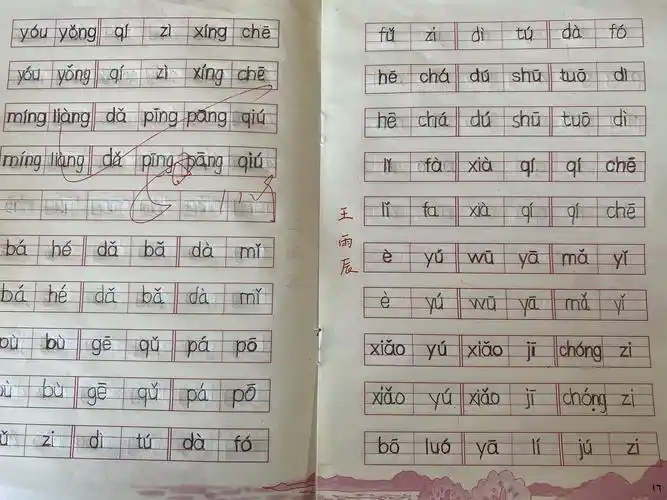 yóu yǒng qí zì xíng chē
yóu yǒng qí zì xíng chē
míng liàng dǎ pīng pāng qiú
míng liàng dǎ pīng pāng qiú
bá hé dǎ bǎ dà mǐ
bá hé dǎ bǎ dà mǐ
bù gē qǔ pá pō
bù gē qǔ pá pō
zi dì tú dà fó
fǔ zi dì tú dà fó
hē chá dú shū tuō dì
hē chá dú shū tuō dì
lǐ fà xià qí qí chē
lǐ fa xià qí qí chē
王雨辰
è yú wū yā mǎ yǐ
è yú wū yā mǎ yǐ
xiǎo yú xiǎo jī chóng zi
xiǎo yú xiǎo jī chóng zi
bō luó yā lí jú zi
17